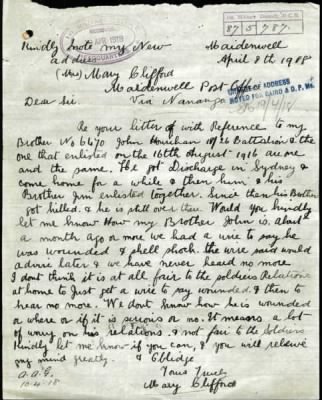 APR 1918
HEADQUARTERS
87/5/787.
Kindly note my New
address
Maidenwell
April 8th 1918
(Mrs) Mary Clifford
Maidenwell Post Office
Via Nanango
CHANGE OF ADDRESS
NOTED FOR
19/4/18
Dear Sir.
Re your letter of with Reference to my
Brother No 6470 John Hourigan 26 Battalion & the
one that enlisted on the 16th August 1916 are one
and the same. He got Discharge in Sydney &
come home for a while & then him & his
Brother Jim enlisted together. Since then his Brother
got killed. & he is still over there. Would you kindly
let me know How my Brother John is. about
a month ago or more we had a wire to say he
was wounded & shell shock. the wire said would
advise later & we have never heard no more
I dont think it is at all fair to the soldiers Relations
at home to Just get a wire to say wounded. & then to
hear no more. We dont know how he is wounded
or where or if it is serious or no. It means a lot
of worry on his relations. & not fair to the Soldiers
Kindly let me know if you can, & you will relieve
my mind greatly. & Oblidge
Yours Truly
Mary Clifford
A.A.G.
10.4.18